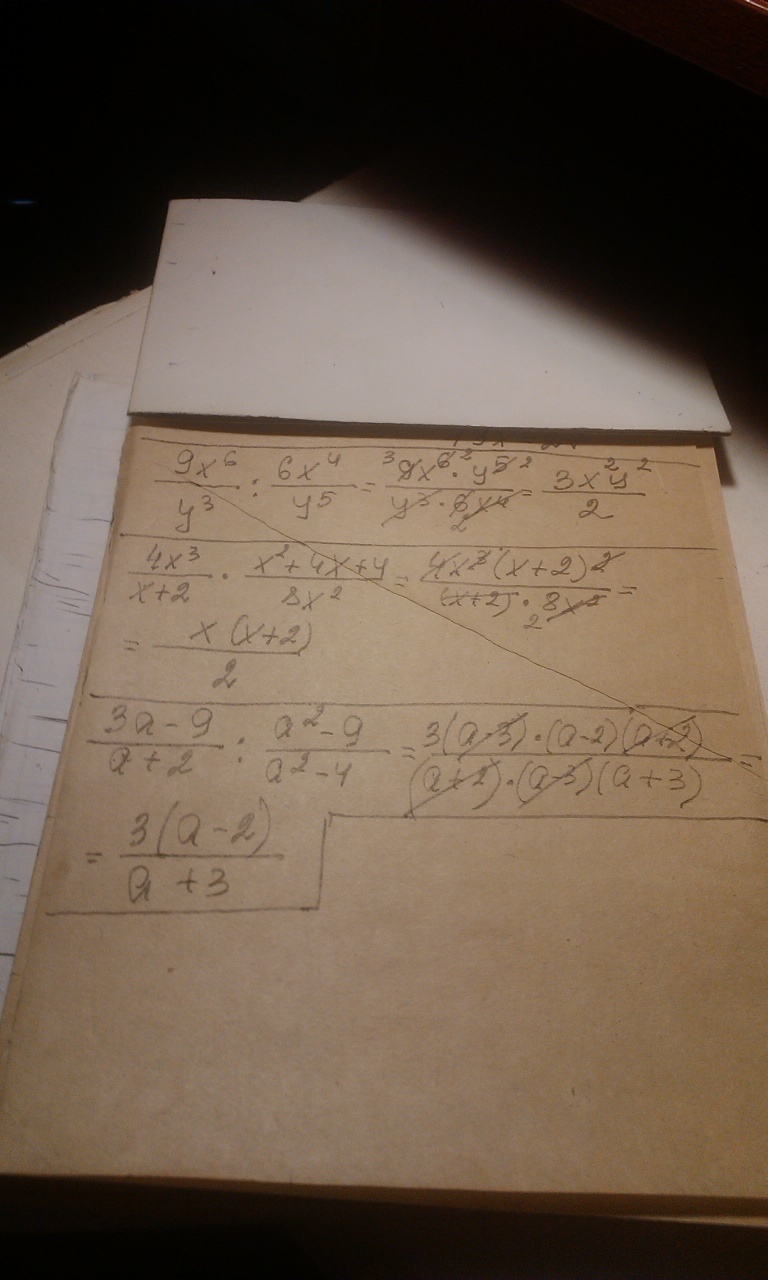 9x⁶/y³ : 6x⁴/y⁵ = 9x⁶·y⁵/y³·6x⁴ = 3x²y²/2
4x³/x+2 · x²+4x+4/8x² = 4x³(x+2)²/(x+2)·8x² =
= x(x+2)/2
3a-9/a+2 : a²-9/a²-4 = 3(a-3)·(a-2)(a+2)/(a+2)·(a-3)(a+3) =
= 3(a-2)/a+3